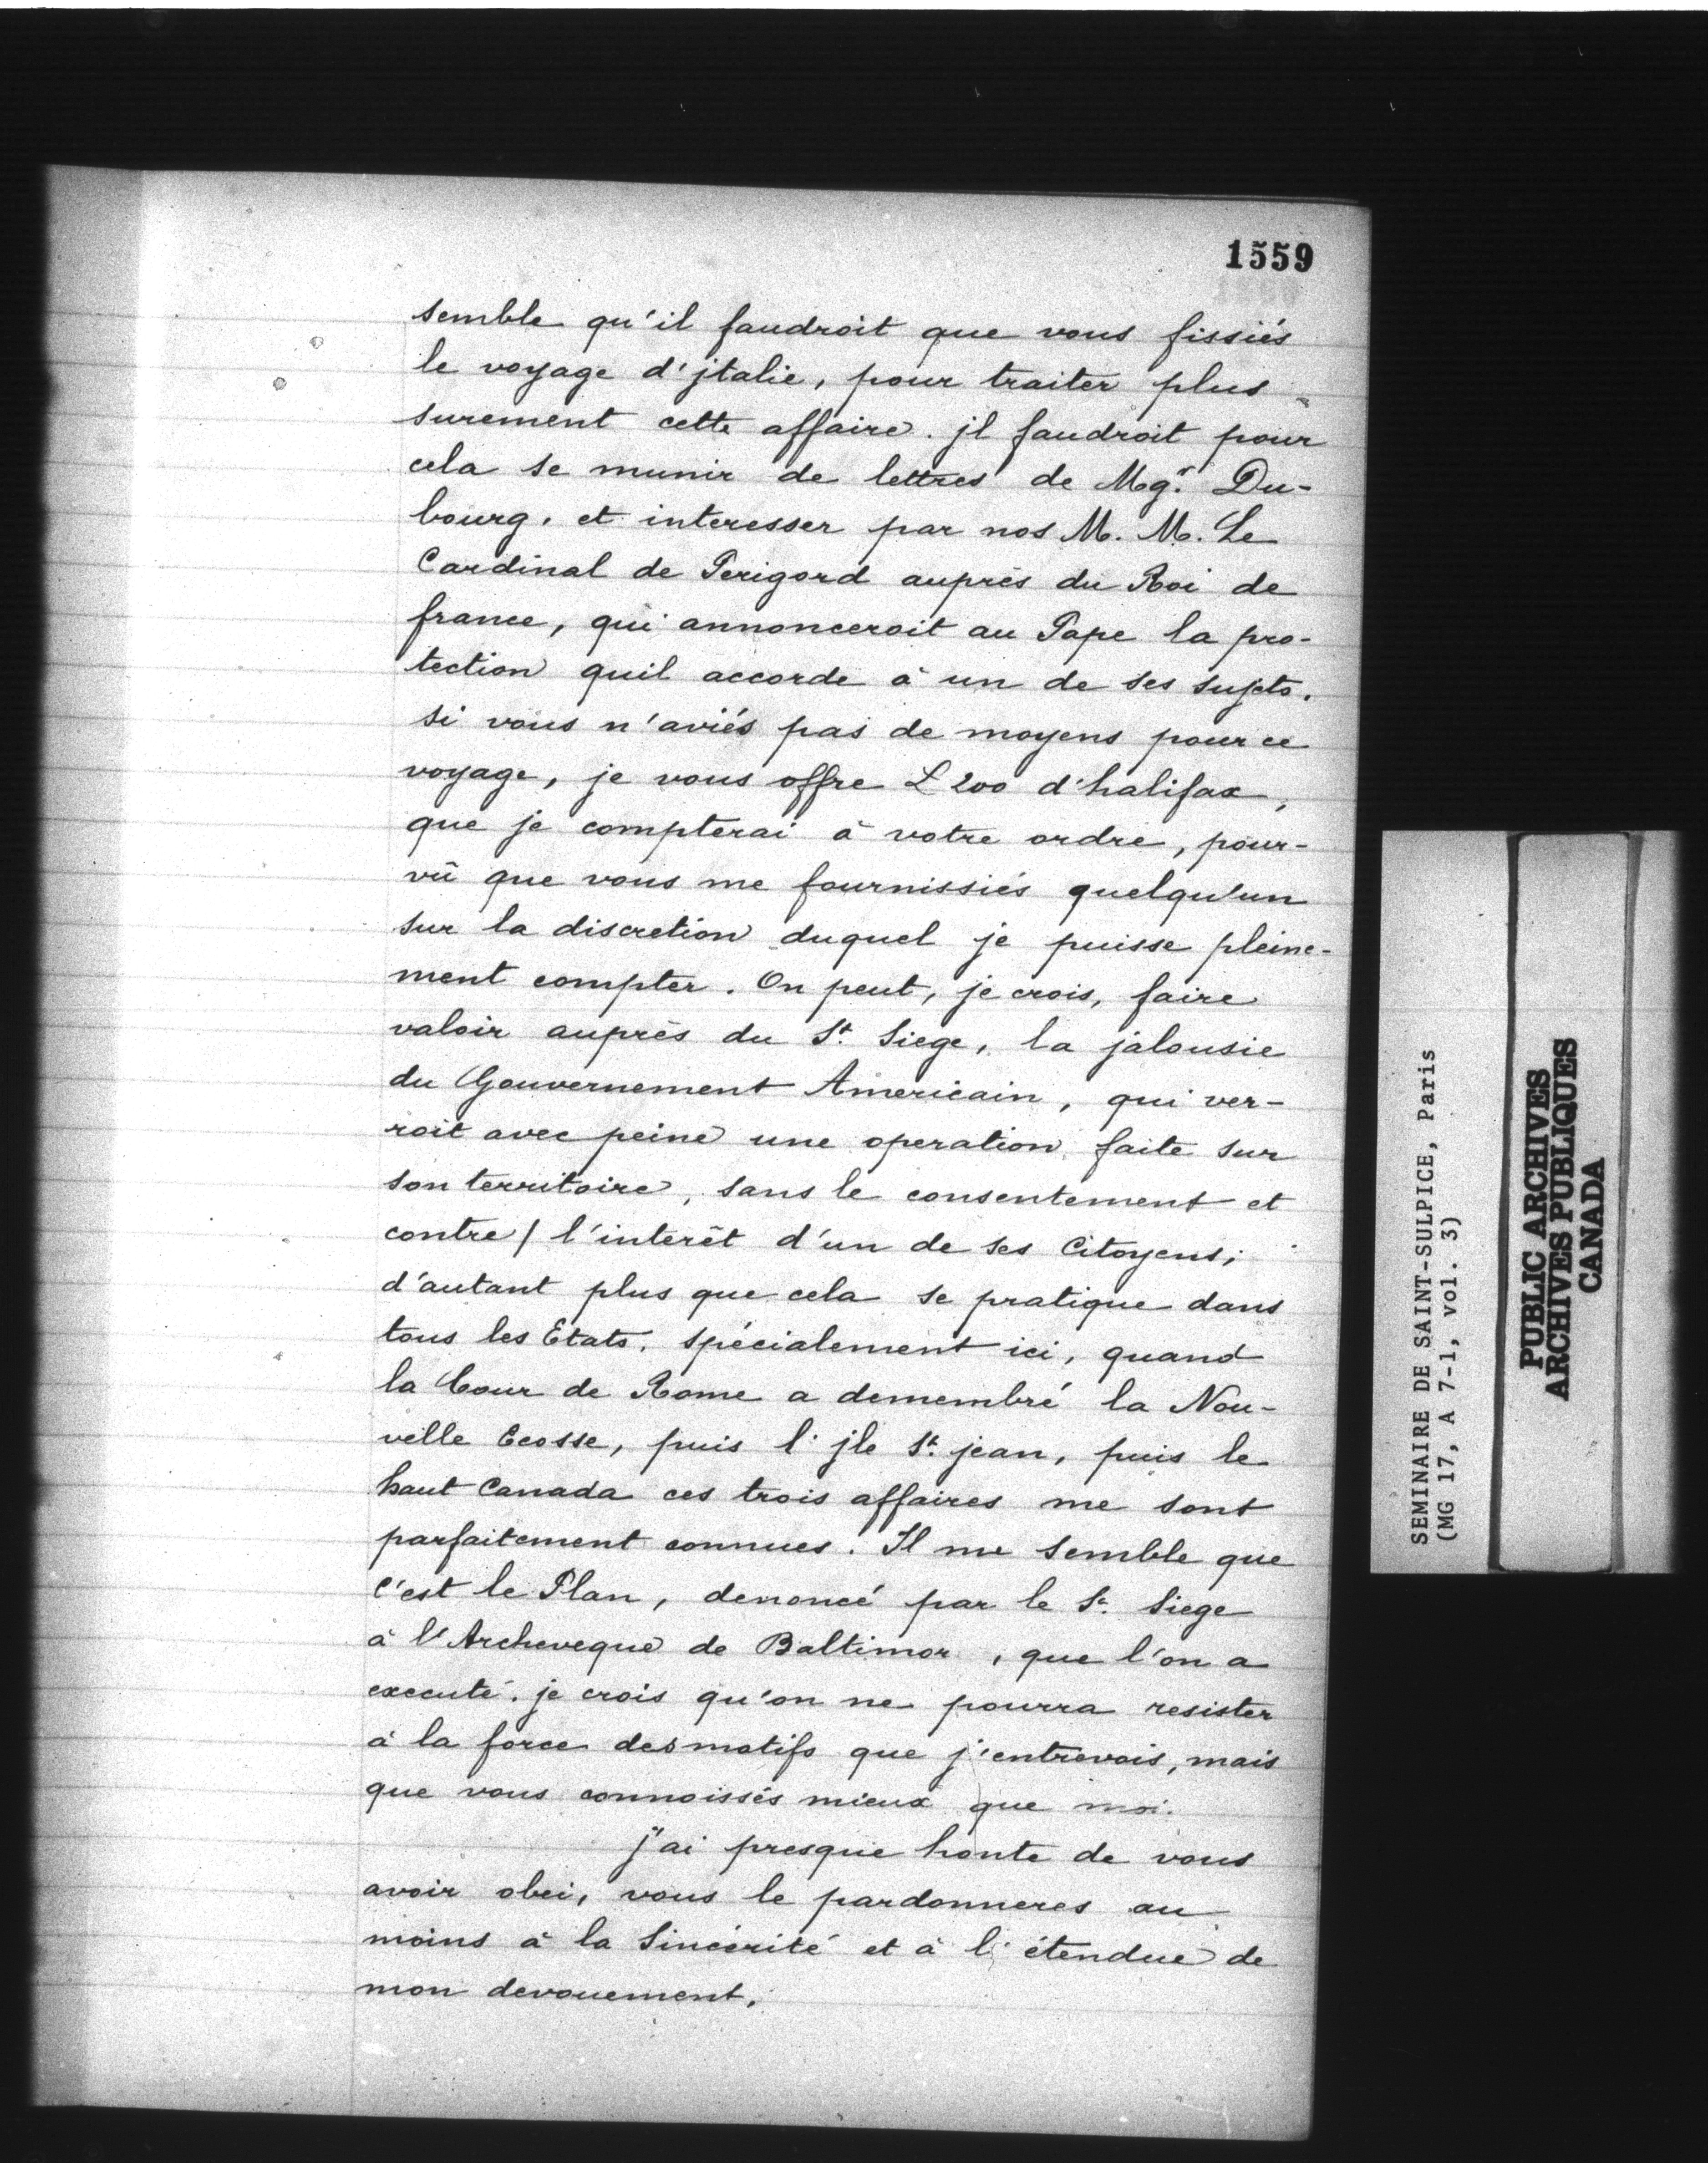 1559
semble qu'il faudroit que vous fissiés
le voyage d'jtalie, pour traiter plus
surement cette affaire. jl faudroit pour
cela se munir de lettres de Mgr. Du-
bourg. et interesser par nos M. M. Le
Cardinal de Perigord auprès du Roi de
france, qui annonceroit au Pape la pro-
tection quil accorde à un de ses sujets.
si vous n'aviés pas de moyens pour ce
voyage, je vous offre £ 200 d'halifax,
que je compterai à votre ordre, pour-
vû que vous me fournissiés quelqu'un
sur la discretion duquel je puisse pleine-
ment compter. On peut, je crois, faire
valoir auprès du St. Siege, la jalousie
du Gouvernement Americain, qui ver-
roit avec peine une operation faite sur
son territoire, sans le consentement et
contre / l'interêt d'un de ses Citoyens;
d'autant plus que cela se pratique dans
tous les Etats. spécialement ici, quand
la Cour de Rome a demembré la Nou-
velle Ecosse, puis l'jle St. jean, puis le
haut Canada ces trois affaires me sont
parfaitement connues. Il me semble que
c'est le Plan, denoncé par le St. Siege
à l'Archeveque de Baltimor, que l'on a
executé. je crois qu'on ne pourra resister
à la force des motifs que j'entrevois, mais
que vous connoissés mieux que moi.
j'ai presque honte de vous
avoir obei, vous le pardonneres au
moins à la Sincérité et à l'étendue de
mon devouement.
SEMINAIRE DE SAINT-SULPICE, Paris
(MG 17, A 7-1, vol. 3)
PUBLIC ARCHIVES
ARCHIVES PUBLIQUES
CANADA